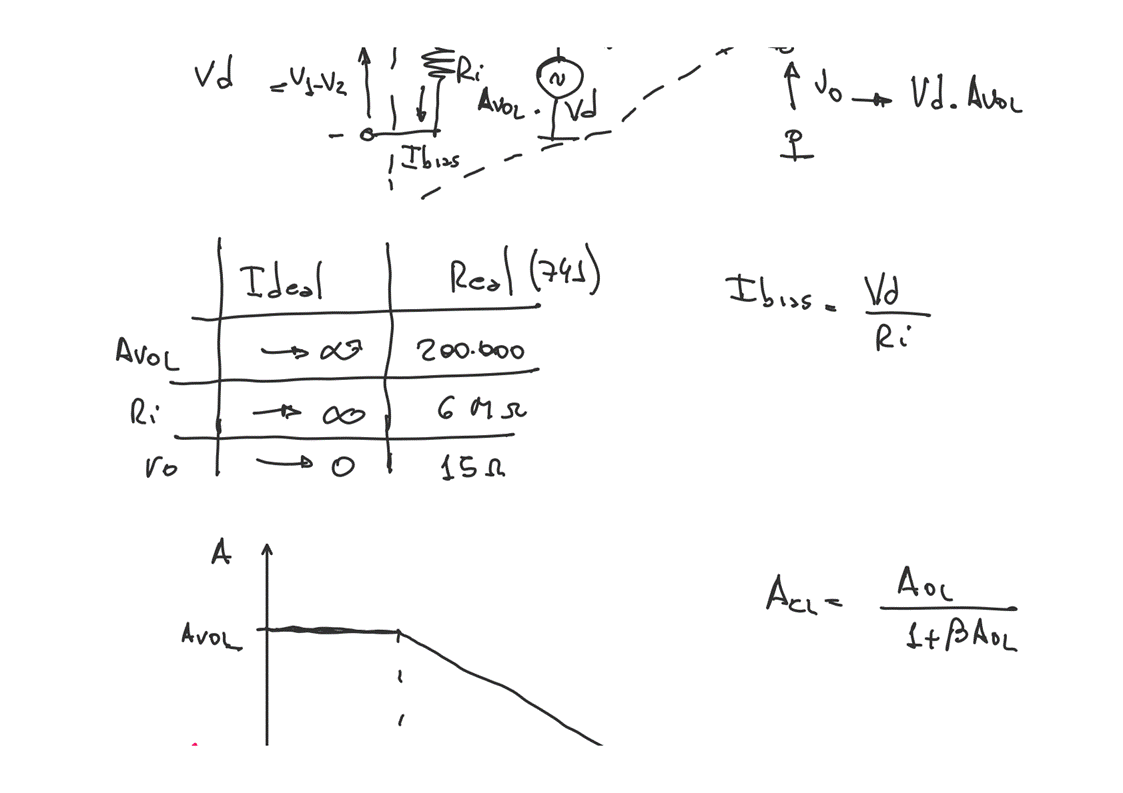 Vd = V1-V2
Ri
AVOL . Vd
Vo → Vd. AVOL
-
Ibias
Ideal Real (741)
AVOL → ∞ 200.000
Ri → ∞ 6 MΩ
ro → 0 15 Ω
Ibias = Vd / Ri
A
AVOL
ACL = AOL / 1+βAOL